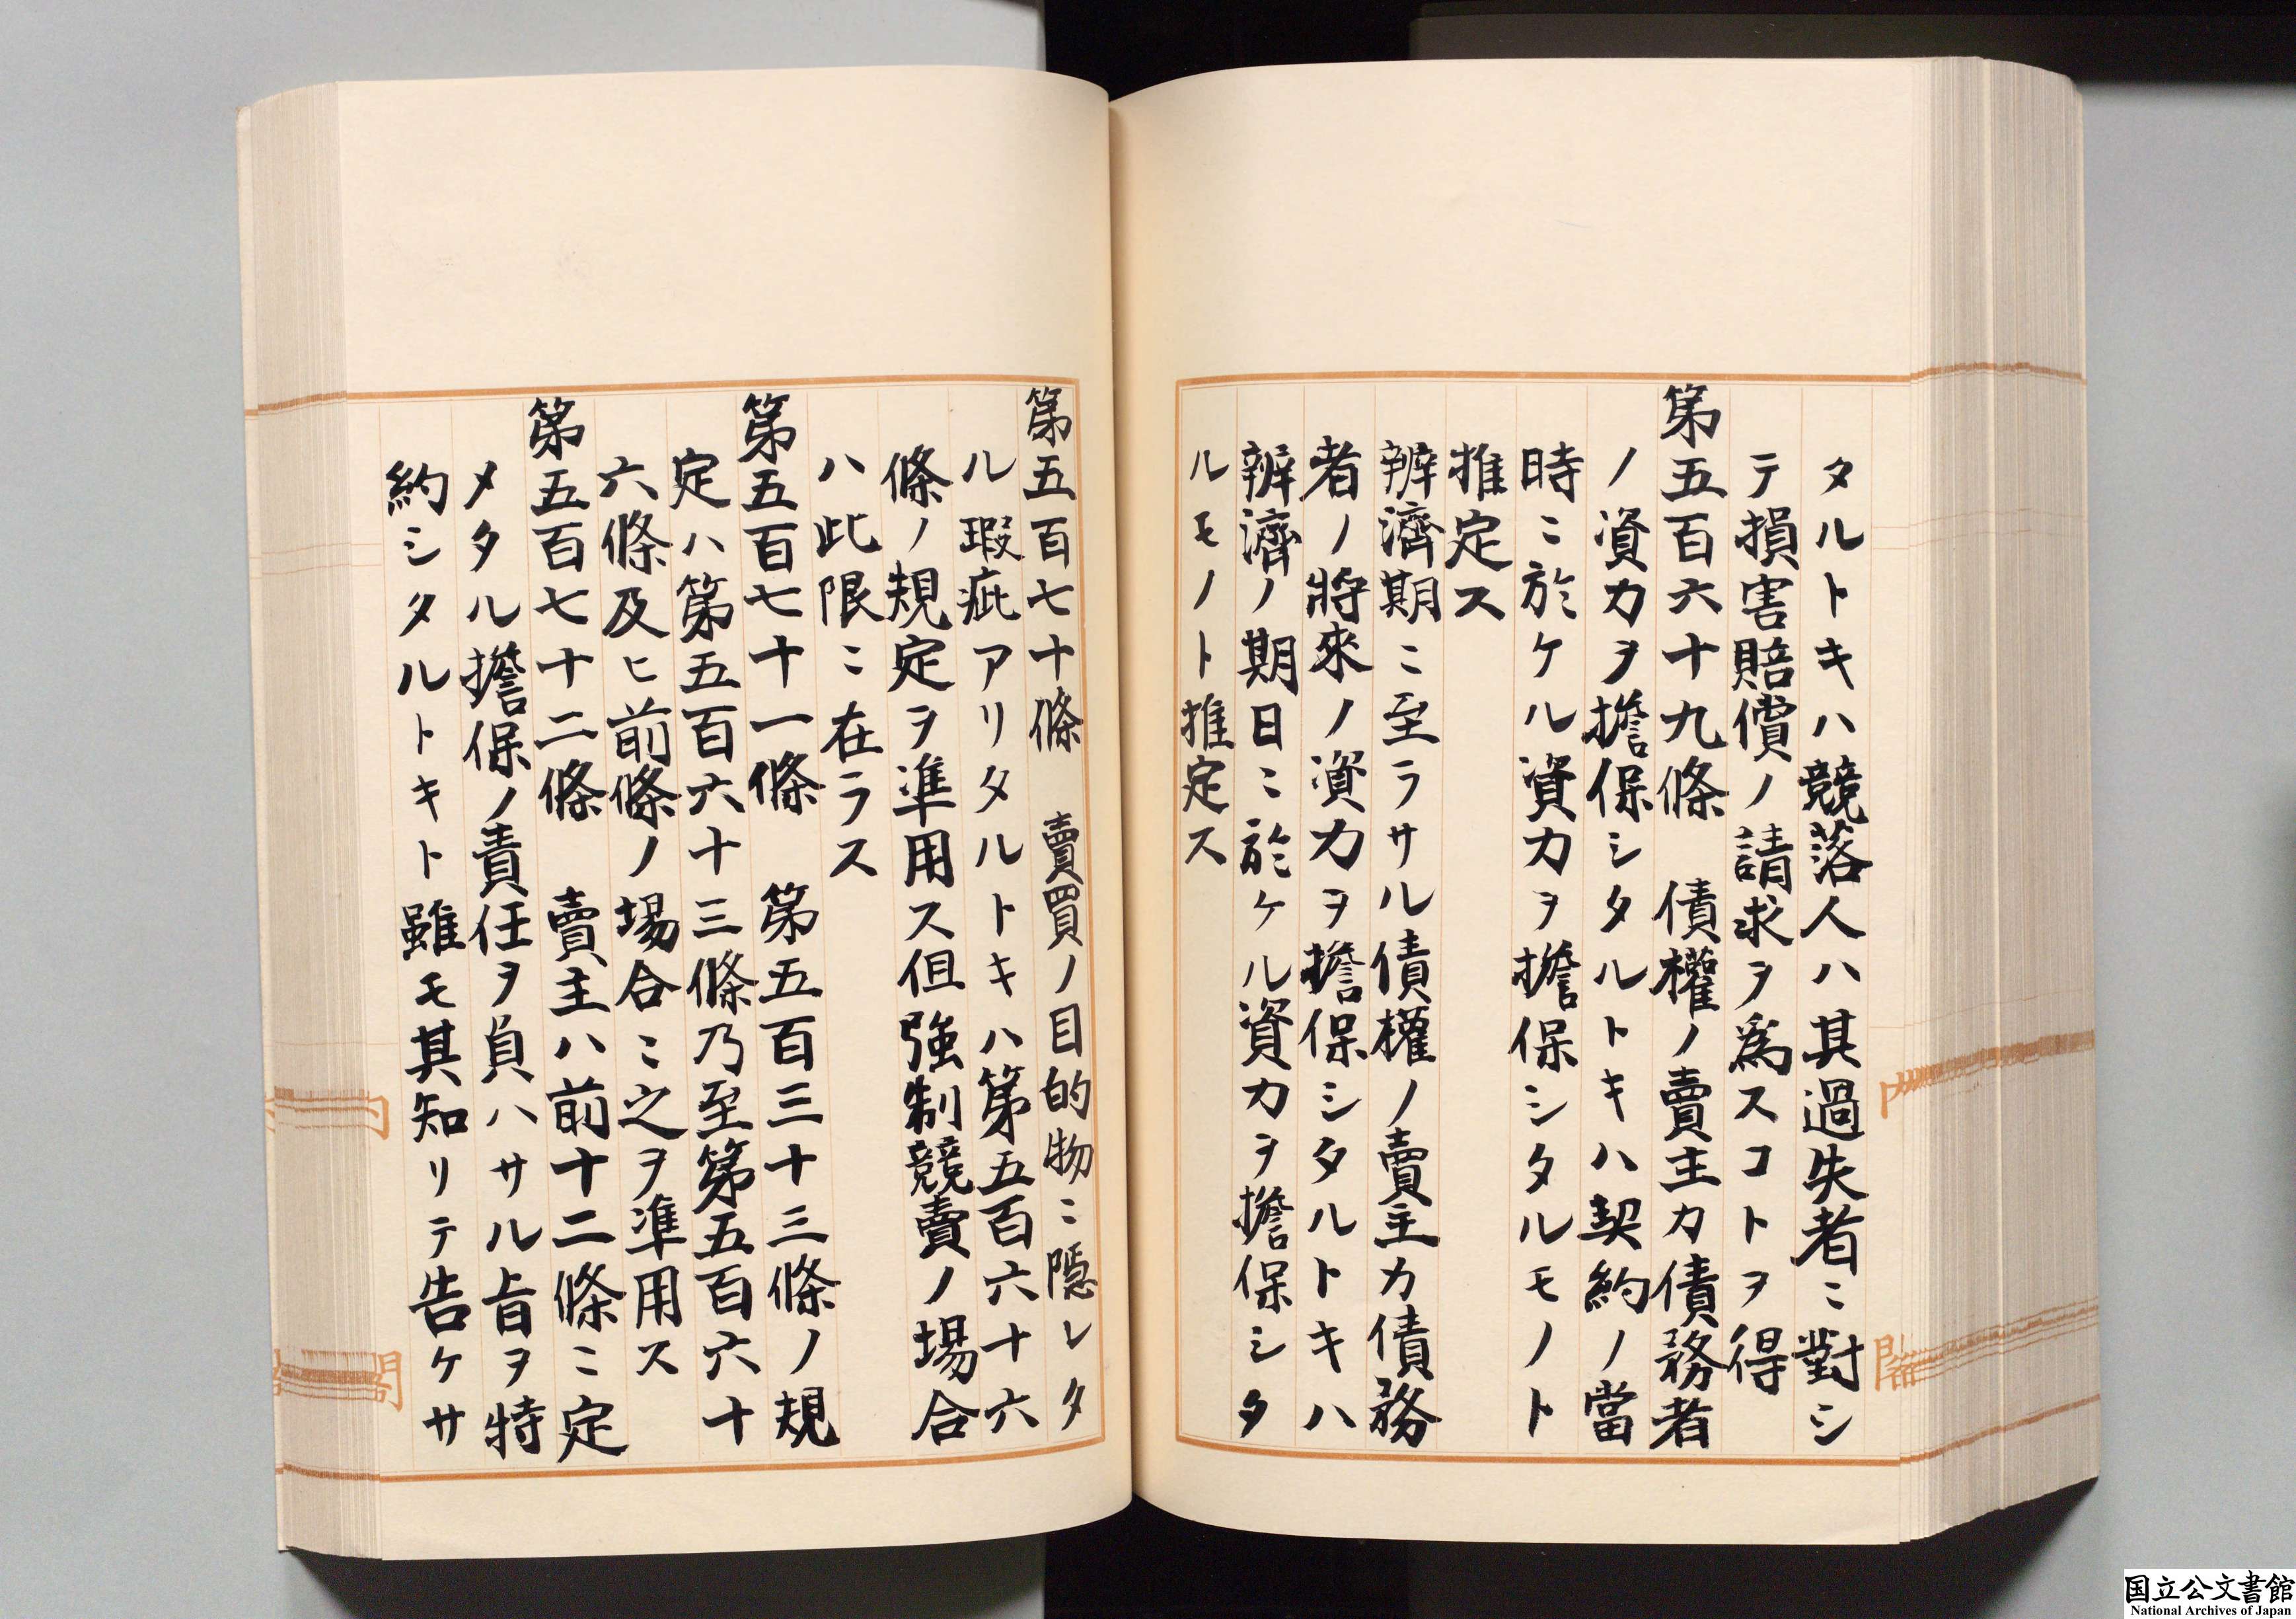 タルトキハ競落人ハ其過失者ニ對シ
テ損害賠償ノ請求ヲ爲スコトヲ得
第五百六十九條 債權ノ賣主カ債務者
ノ資力ヲ擔保シタルトキハ契約ノ當
時ニ於ケル資力ヲ擔保シタルモノト
推定ス
辨濟期ニ至ラサル債權ノ賣主カ債務
者ノ將來ノ資力ヲ擔保シタルトキハ
辨濟ノ期日ニ於ケル資力ヲ擔保シタ
ルモノト推定ス
第五百七十條 賣買ノ目的物ニ隱レタ
ル瑕疵アリタルトキハ第五百六十六
條ノ規定ヲ準用ス但強制競賣ノ場合
ハ此限ニ在ラス
第五百七十一條 第五百三十三條ノ規
定ハ第五百六十三條乃至第五百六十
六條及ヒ前條ノ場合ニ之ヲ準用ス
第五百七十二條 賣主ハ前十二條ニ定
メタル擔保ノ責任ヲ負ハサル旨ヲ特
約シタルトキト雖モ其知リテ告ケサ
内
閣
国立公文書館
National Archives of Japan